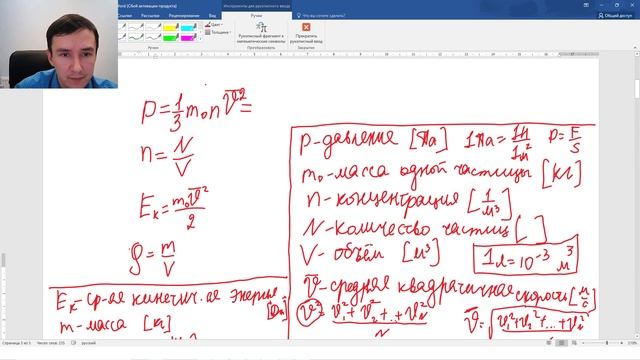 Word (Сбой активации продукта)
Инструменты для рукописного ввода
Вставка
Рисование
Разметка страницы
Ссылки
Рассылки
Рецензирование
Вид
Ручки
Что вы хотите сделать?
Общий доступ
Цвет
Толщина
Рукописный фрагмент в математические символы
Прекратить рукописный ввод
Ручки
Преобразовать
Закрыть
p = 1/3 m₀ n v̅² =
n = N/V
Eₖ = m₀v̅²/2
ρ = m/V
p - давление [Па] 1Па = 1Н/1м² p = F/S
m₀ - масса одной частицы [кг]
n - концентрация [1/м³]
N - количество частиц [ ]
V - объём [м³] 1л = 10⁻³ м³
v̅ - средняя квадратичная скорость [м/с]
v̅² = v₁² + v₂² + ... + v_N² / N v̅ = √ v₁² + v₂² + ... + v_N²
Eₖ - ср-ая кинетич.ая энергия [Дж]
m - масса [кг]
Страница 5 из 5
Число слов: 235
русский
270%